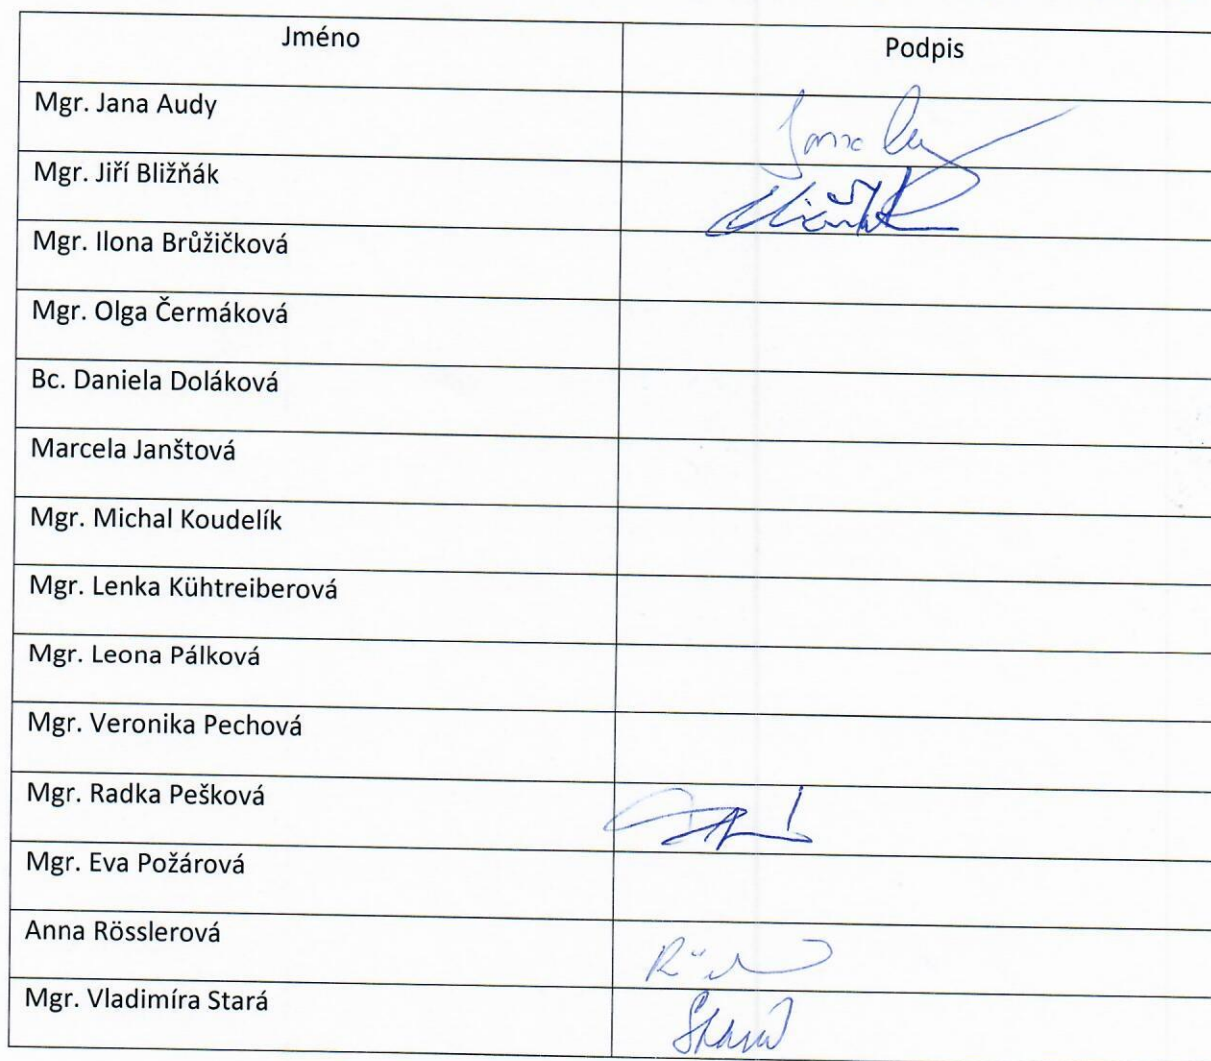 Jméno Podpis
Mgr. Jana Audy
Mgr. Jiří Bližňák
Mgr. Ilona Brůžičková
Mgr. Olga Čermáková
Bc. Daniela Doláková
Marcela Janštová
Mgr. Michal Koudelík
Mgr. Lenka Kühtreiberová
Mgr. Leona Pálková
Mgr. Veronika Pechová
Mgr. Radka Pešková
Mgr. Eva Požárová
Anna Rösslerová
Mgr. Vladimíra Stará